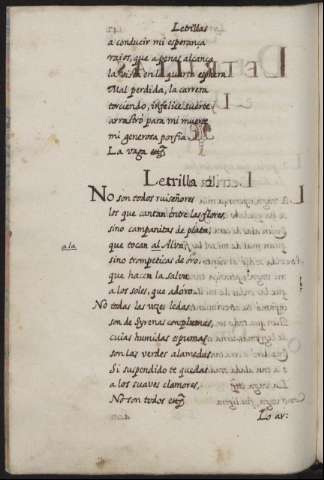 Letrillas
a conducir mi esperança
rayos, que a penas alcança
la vista en la quarta esphera
Mal perdida, la carrera
torciendo, infelice suerte
arrastrò para mi muerte
mi generosa porfia.
La vaga
Letrilla
No son todos ruiseñores
los que cantan entre las flores,
sino campanitas de plata,
a la
que tocan al Alva;
sino trompeticas de oro,
que hacen la salva
a los soles, que adoro.
No todas las vozes ledas
son de Syrenas con plumas,
cuias humidas espumas
son las verdes alamedas
Si suspendido te quedas
a los suaves clamores,
No son todos
Lo ar: